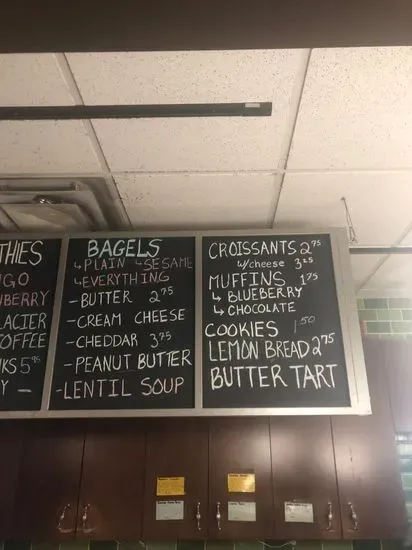 THIES
NGO
WBERRY
LACIER
COFFEE
KS 5
Y —
BAGELS
↳ PLAIN ↳ SESAME
↳ EVERYTHING
- BUTTER 2.75
- CREAM CHEESE
- CHEDDAR 3.75
- PEANUT BUTTER
- LENTIL SOUP
CROISSANTS 2.75
w/cheese 3.25
MUFFINS 1.75
↳ BLUEBERRY
↳ CHOCOLATE
COOKIES 1.50
LEMON BREAD 2.75
BUTTER TART